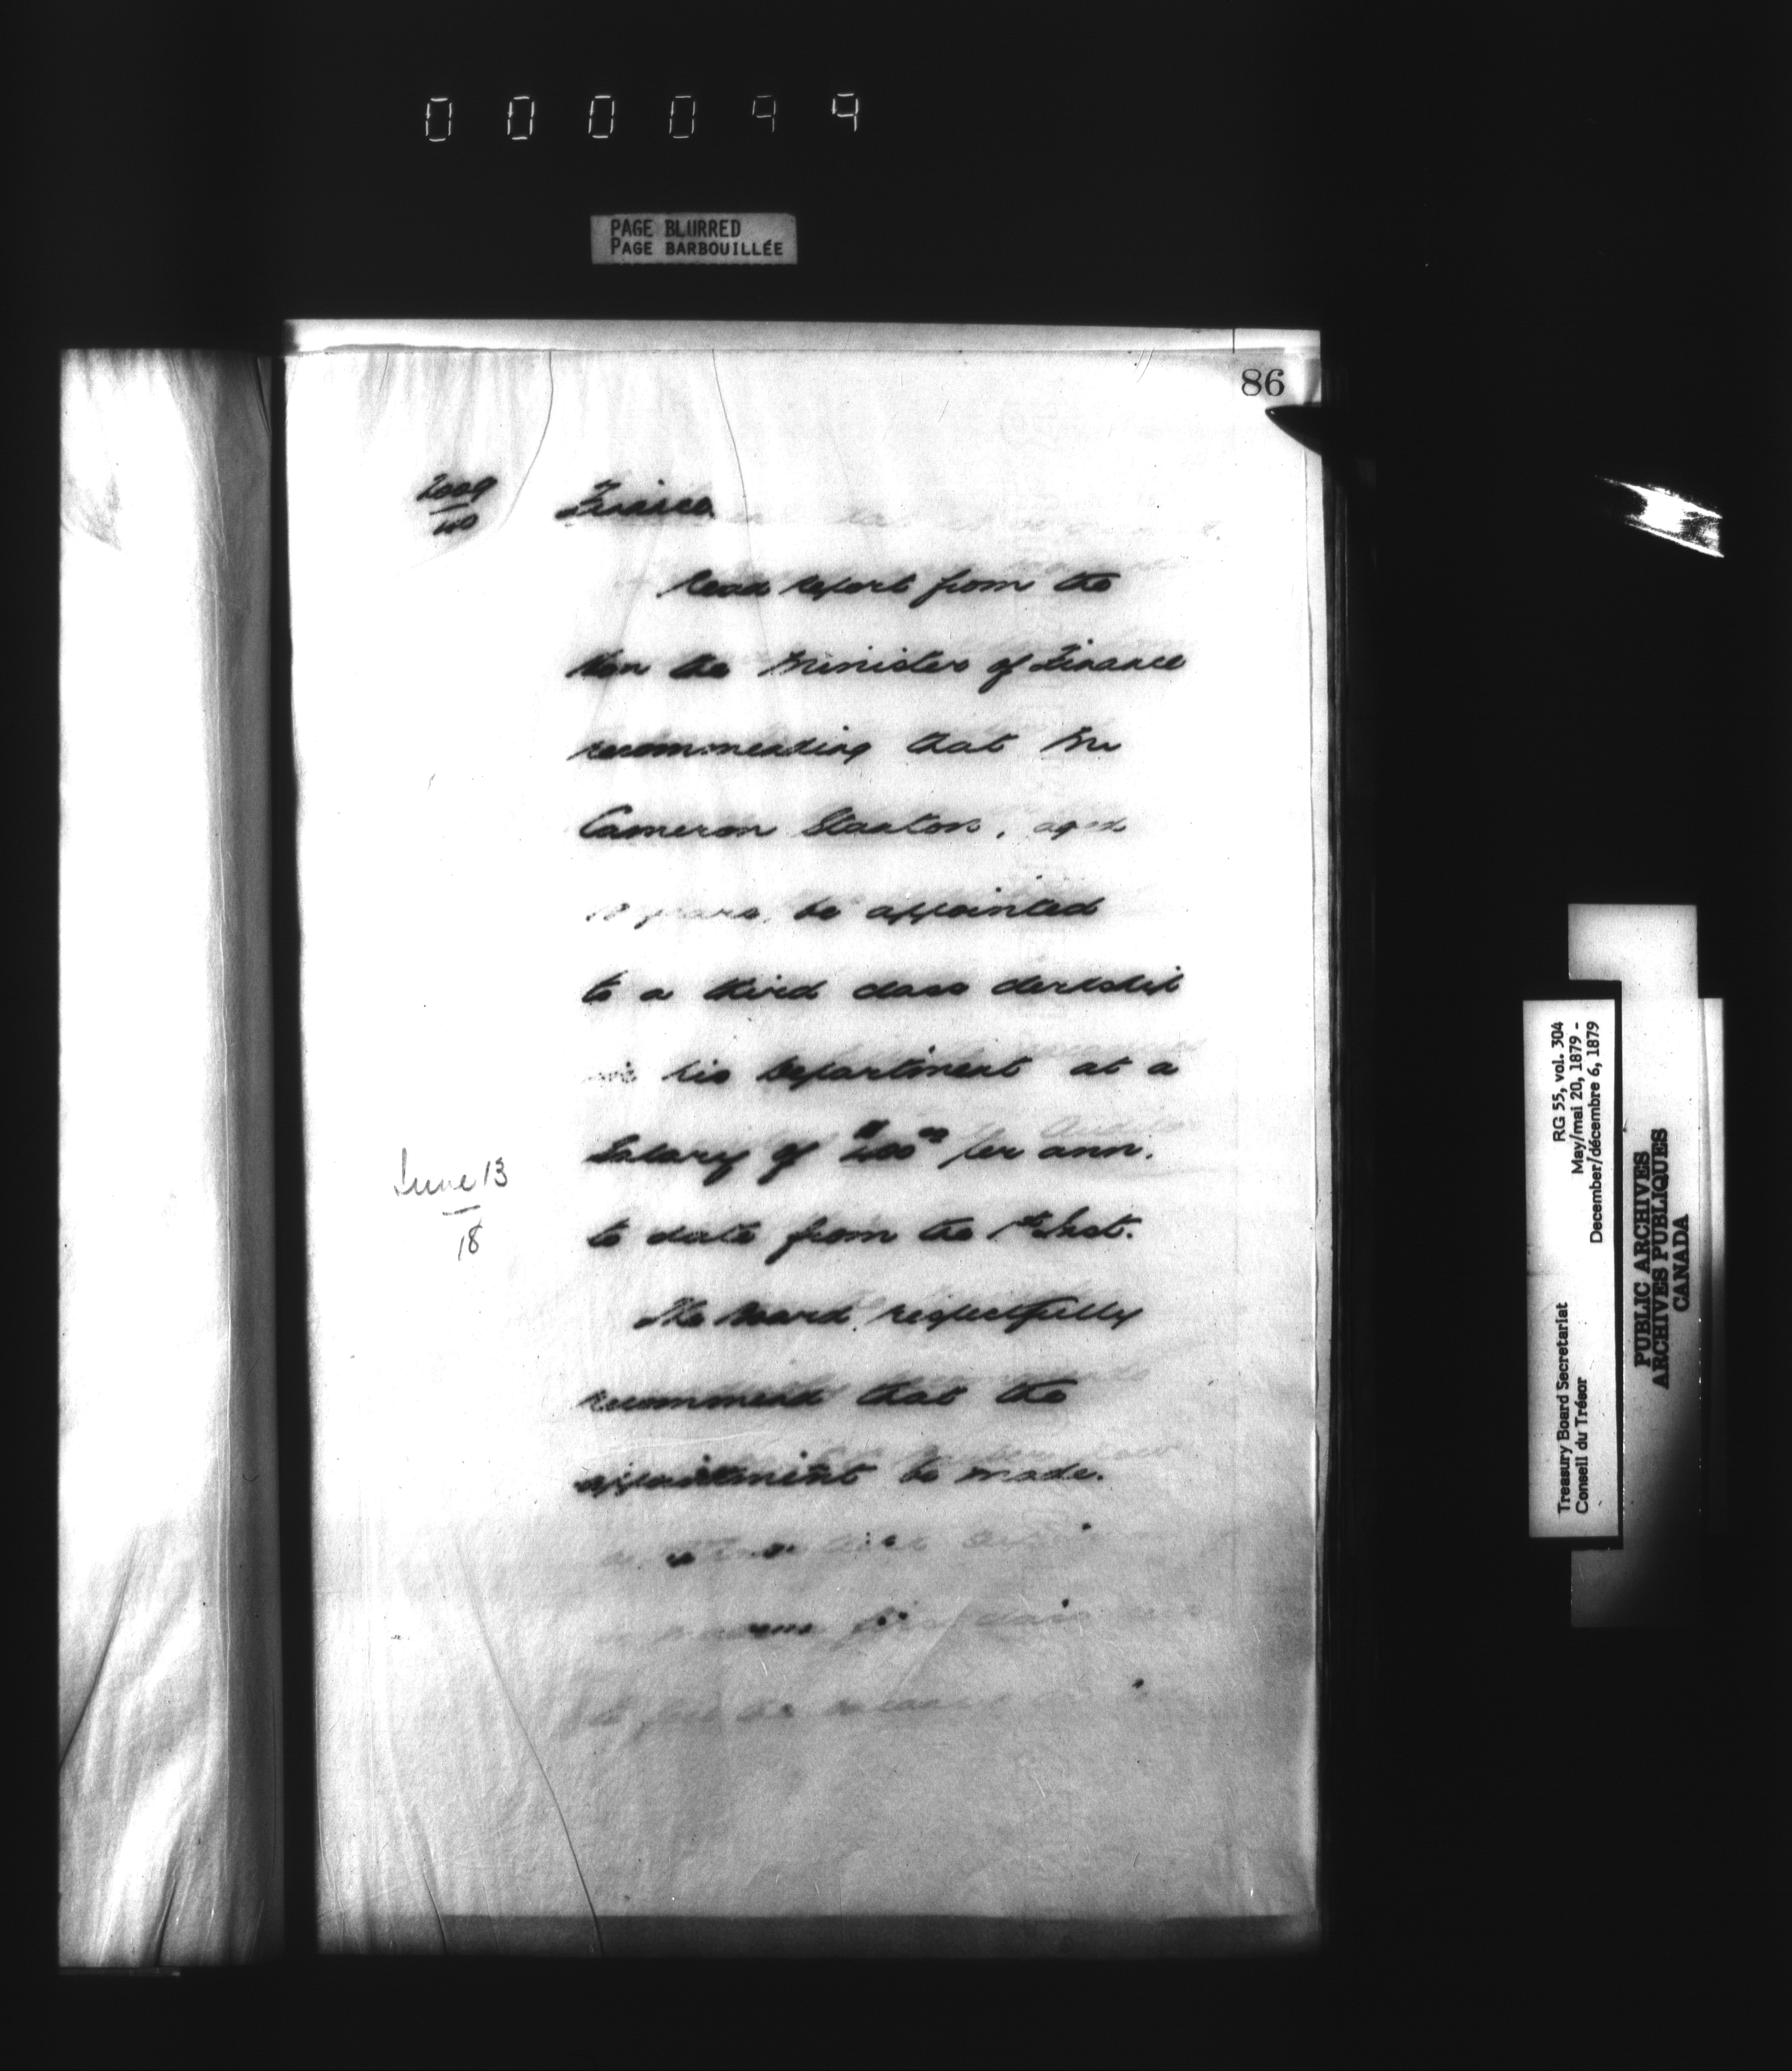 000099
PAGE BLURRED
PAGE BARBOUILLÉE
86
Finance
Read report from the
Hon the Minister of Finance
recommending that Mr
Cameron Stanton, aged
18 years, be appointed
to a third class clerkship
in his Department at a
Salary of $400.00 per ann.
to date from the 1st Inst.
The Board respectfully
recommend that the
appointment be made.
June 13
18
RG 55, vol. 304
May/mai 20, 1879 -
December/décembre 6, 1879
Treasury Board Secretariat
Conseil du Trésor
PUBLIC ARCHIVES
ARCHIVES PUBLIQUES
CANADA